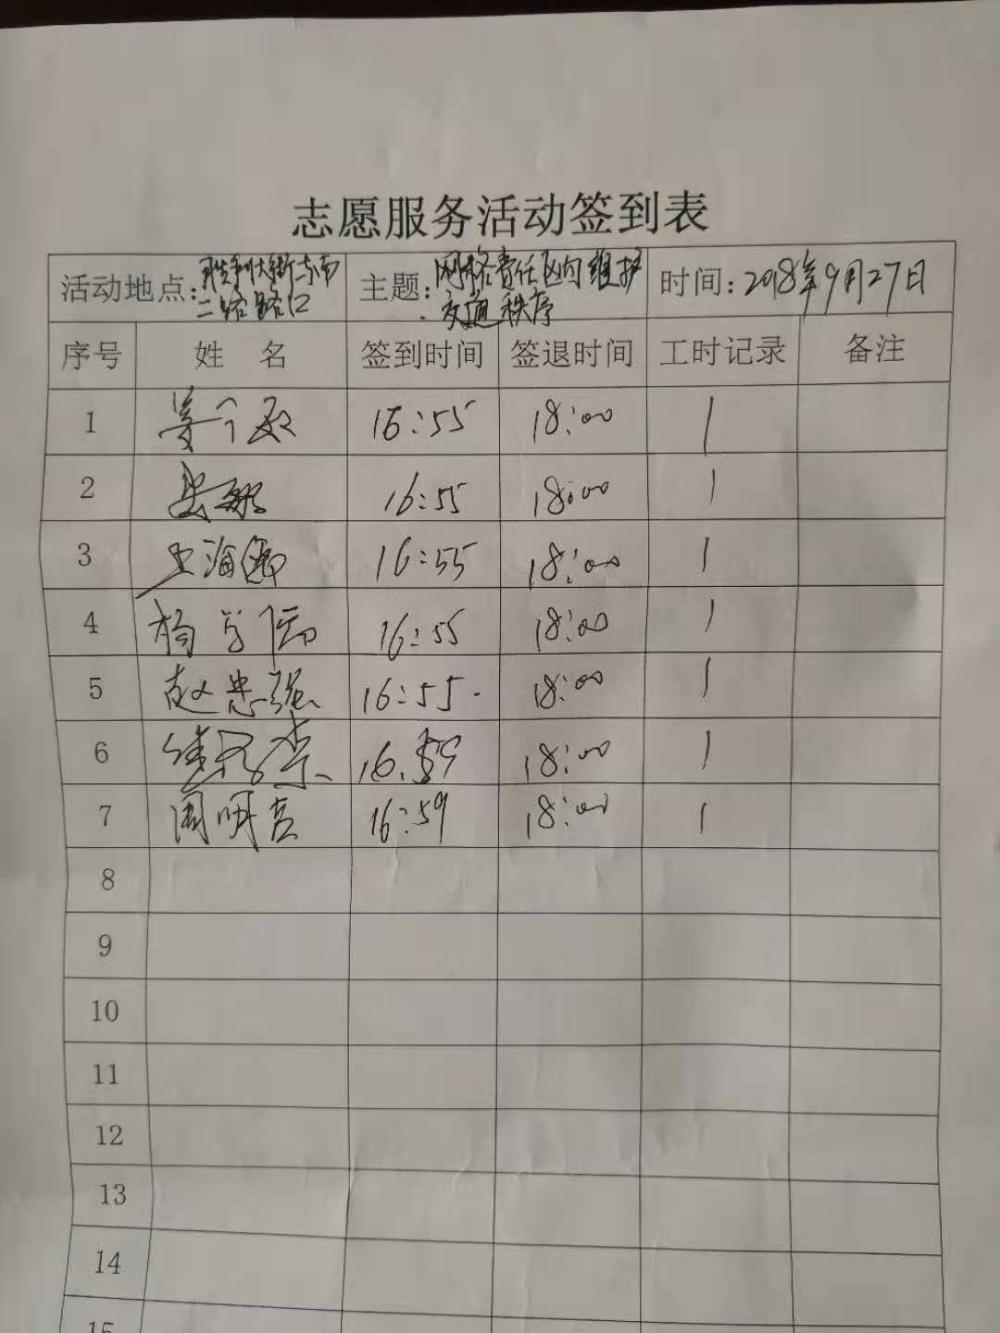 志愿服务活动签到表
活动地点: 胜利大街与南二路路口 主题: 网格责任区内维护交通秩序 时间: 2018年9月27日
序号 姓 名 签到时间 签退时间 工时记录 备注
1 16:55 18:00 1
2 16:55 18:00 1
3 王海 16:55 18:00 1
4 杨 16:55 18:00 1
5 赵忠强 16:55. 18:00 1
6 16.59 18:00 1
7 周明亮 16:59 18:00 1
8
9
10
11
12
13
14
15